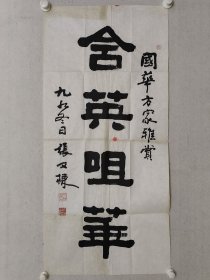 國華方家雅賞
含英咀華
九〇冬日張又棟